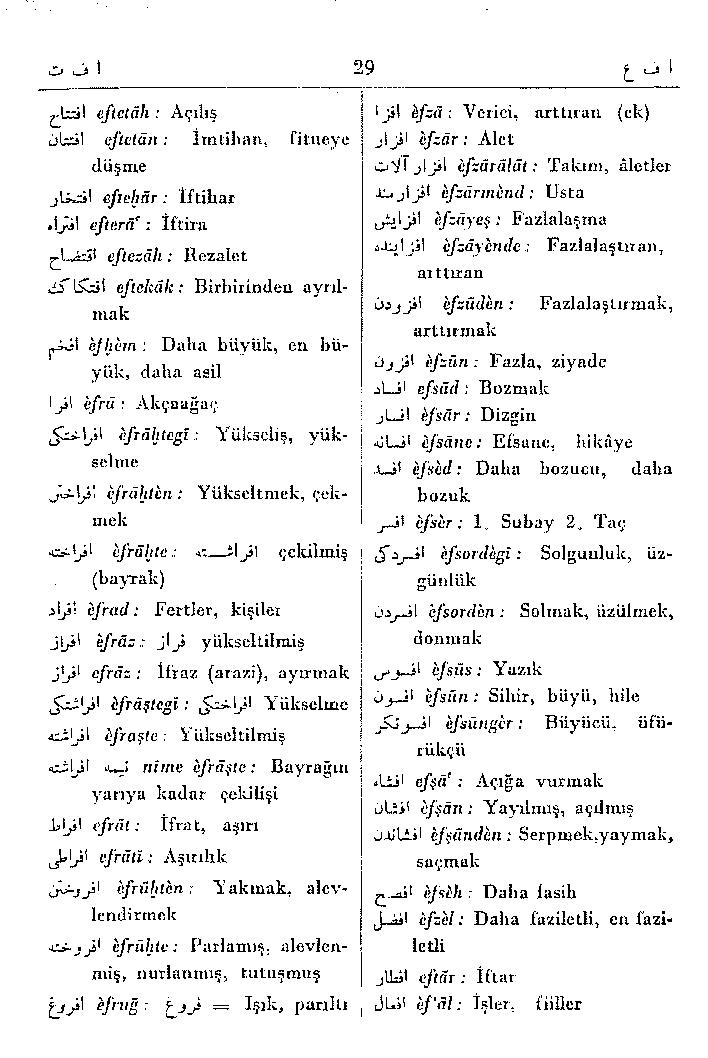 ا ف ت
29
ا ف ع
افتتاح eftetāh : Açılış
افتتان eftetān : İmtihan, fitneye
düşme
افتخار eftehār : İftihar
افتراء efterā' : İftira
افتضاح eftezāh : Rezalet
افتكاك eftekāk : Birbirinden ayrıl-
mak
افخم èfhèm : Daha büyük, en bü-
yük, daha asil
افرا èfrā : Akçaağaç
افراختگى èfrāḫtegī : Yükseliş, yük-
selme
افراختن èfrāḫtèn : Yükseltmek, çek-
mek
افراخته èfrāḫte : افراشته çekilmiş
(bayrak)
افراد èfrad : Fertler, kişiler
افراز èfrāz : فراز yükseltilmiş
افراز efrāz : İfraz (arazi), ayırmak
افراشتگى èfrāştegī : افراختگى Yükselme
افراشته èfraşte : Yükseltilmiş
نيمه افراشته nime èfrāşte : Bayrağın
yarıya kadar çekilişi
افراط efrāt : İfrat, aşırı
افراطى efrātī : Aşırılık
افروختن èfrūḫtèn : Yakmak, alev-
lendirmek
افروخته èfrūḫte : Parlamış, alevlen-
miş, nurlanmış, tutuşmuş
افروغ èfruğ : فروغ = Işık, parıltı
افزا èfzā : Verici, arttıran (ek)
افزار èfzār : Alet
افزار آلات èfzārālāt : Takım, âletler
افزارمند èfzārmènd : Usta
افزايش èfzāyeş : Fazlalaşma
افزاينده èfzāyènde : Fazlalaştıran,
arttıran
افزودن èfzūdèn : Fazlalaştırmak,
arttırmak
افزون èfzūn : Fazla, ziyade
افساد efsād : Bozmak
افسار èfsār : Dizgin
افسانه èfsāne : Efsane, hikâye
افسد èfsèd : Daha bozucu, daha
bozuk
افسر èfsèr : 1. Subay 2. Taç
افسردگى èfsordègī : Solgunluk, üz-
günlük
افسردن èfsordèn : Solmak, üzülmek,
donmak
افسوس èfsūs : Yazık
افسون èfsūn : Sihir, büyü, hile
افسونگر èfsūngèr : Büyücü, üfü-
rükçü
افشاء efşā' : Açığa vurmak
افشان èfşān : Yayılmış, açılmış
افشاندن èfşāndèn : Serpmek,yaymak,
saçmak
افصح èfsèh : Daha fasih
افضل èfzèl : Daha faziletli, en fazi-
letli
افطار eftār : İftar
افعال èf'āl : İşler, fiiller